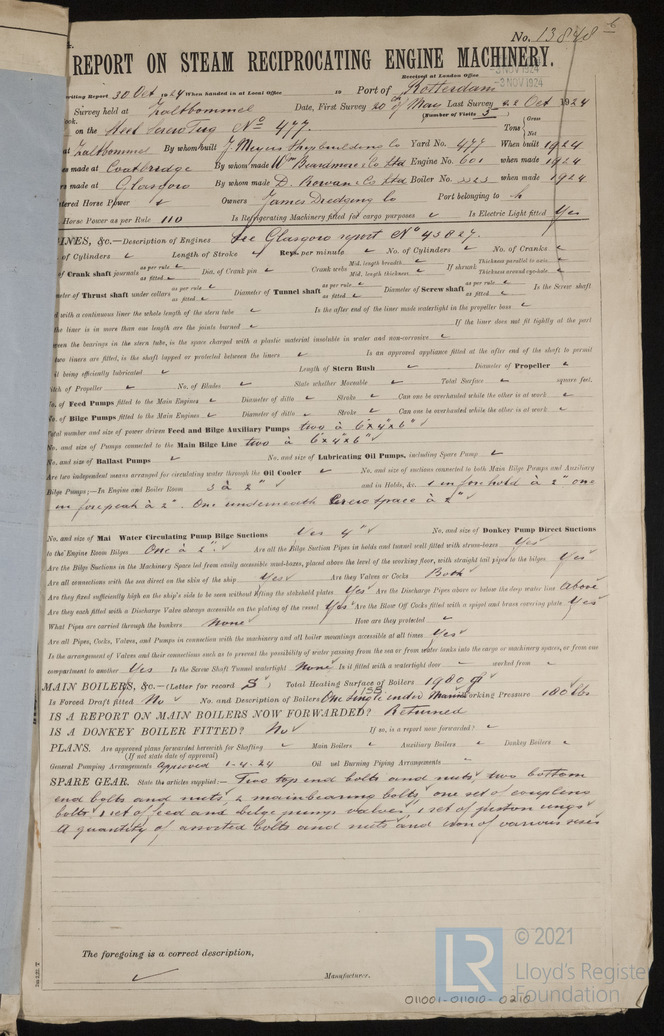 No. 13848
REPORT ON STEAM RECIPROCATING ENGINE MACHINERY.
Received at London Office
3 NOV 1924
-3 NOV 1924
writing Report 30 Oct 1924 When handed in at Local Office 19 Port of Rotterdam
Survey held at Zaltbommel Date, First Survey 20 May Last Survey 22 Oct 1924
(Number of Visits 5
on the Steel Screw Tug No 477. Tons Gross Net
at Zaltbommel By whom built J. Meyers Shipbuilding Co Yard No. 477 When built 1924
made at Coatbridge By whom made Wm Beardmore & Co Ltd Engine No. 601 when made 1924
made at Glasgow By whom made D. Rowan & Co Ltd Boiler No. when made 1924
Horse Power ✓ Owners James Dredging Co Port belonging to
Horse Power as per Rule 110 Is Refrigerating Machinery fitted for cargo purposes ✓ Is Electric Light fitted Yes
INES, &c.—Description of Engines See Glasgow report No 43827.
of Cylinders ✓ Length of Stroke ✓ Revs. per minute ✓ No. of Cylinders ✓ No. of Cranks ✓
of Crank shaft journals as per rule ✓ as fitted ✓ Dia. of Crank pin ✓ Crank webs Mid. length breadth ✓ Mid. length thickness ✓ If shrunk Thickness parallel to axis ✓ Thickness around eye-hole ✓
meter of Thrust shaft under collars as per rule ✓ as fitted ✓ Diameter of Tunnel shaft as per rule ✓ as fitted ✓ Diameter of Screw shaft as per rule ✓ as fitted ✓ Is the Screw shaft
d with a continuous liner the whole length of the stern tube ✓ Is the after end of the liner made watertight in the propeller boss ✓
the liner is in more than one length are the joints burned ✓ If the liner does not fit tightly at the part
ween the bearings in the stern tube, is the space charged with a plastic material insoluble in water and non-corrosive ✓
two liners are fitted, is the shaft lapped or protected between the liners ✓ Is an approved appliance fitted at the after end of the shaft to permit
it being efficiently lubricated ✓ Length of Stern Bush ✓ Diameter of Propeller ✓
itch of Propeller ✓ No. of Blades ✓ State whether Moveable ✓ Total Surface ✓ square feet.
o. of Feed Pumps fitted to the Main Engines ✓ Diameter of ditto ✓ Stroke ✓ Can one be overhauled while the other is at work ✓
o. of Bilge Pumps fitted to the Main Engines ✓ Diameter of ditto ✓ Stroke ✓ Can one be overhauled while the other is at work ✓
Total number and size of power driven Feed and Bilge Auxiliary Pumps two à 6"x4"x6" ✓
No. and size of Pumps connected to the Main Bilge Line two à 6"x4"x6" ✓
No. and size of Ballast Pumps ✓ No. and size of Lubricating Oil Pumps, including Spare Pump ✓
Are two independent means arranged for circulating water through the Oil Cooler ✓ No. and size of suctions connected to both Main Bilge Pumps and Auxiliary
Bilge Pumps;—In Engine and Boiler Room 3 à 2" ✓ and in Holds, &c. 1 in forehold à 2" one
in forepeak à 2". One underneath Screwspace à 2" ✓
No. and size of Mai Water Circulating Pump Bilge Suctions 4" ✓ No. and size of Donkey Pump Direct Suctions
to the Engine Room Bilges One à 2" ✓ Are all the Bilge Suction Pipes in holds and tunnel well fitted with strum-boxes Yes ✓
Are the Bilge Suctions in the Machinery Space led from easily accessible mud-boxes, placed above the level of the working floor, with straight tail pipes to the bilges Yes ✓
Are all connections with the sea direct on the skin of the ship Yes ✓ Are they Valves or Cocks Both ✓
Are they fixed sufficiently high on the ship's side to be seen without lifting the stokehold plates Yes ✓ Are the Discharge Pipes above or below the deep water line Above
Are they each fitted with a Discharge Valve always accessible on the plating of the vessel Yes ✓ Are the Blow Off Cocks fitted with a spigot and brass covering plate Yes ✓
What Pipes are carried through the bunkers None ✓ How are they protected ✓
Are all Pipes, Cocks, Valves, and Pumps in connection with the machinery and all boiler mountings accessible at all times Yes ✓
Is the arrangement of Valves and their connections such as to prevent the possibility of water passing from the sea or from water tanks into the cargo or machinery spaces, or from one
compartment to another Yes Is the Screw Shaft Tunnel watertight None Is it fitted with a watertight door ✓ worked from ✓
MAIN BOILERS, &c.—(Letter for record S ✓) Total Heating Surface of Boilers 1980 ✓
Is Forced Draft fitted No ✓ No. and Description of Boilers One single ended Marine Working Pressure 180 lbs
IS A REPORT ON MAIN BOILERS NOW FORWARDED? Returned
IS A DONKEY BOILER FITTED? No ✓ If so, is a report now forwarded? ✓
PLANS. Are approved plans forwarded herewith for Shafting ✓ Main Boilers ✓ Auxiliary Boilers ✓ Donkey Boilers ✓
(If not state date of approval)
General Pumping Arrangements Approved 1-4-24 Oil uel Burning Piping Arrangements
SPARE GEAR. State the articles supplied:— Two top end bolts and nuts ✓ two bottom
end bolts and nuts, 2 mainbearing bolts ✓ one set of coupling
bolts ✓ 1 set of feed and bilge pumps valves ✓ 1 set of piston rings ✓
A quantity of assorted bolts and nuts and iron of various sizes
The foregoing is a correct description,
✓ Manufacturer.
© 2021
LR
Lloyd's Register
Foundation
011001-011010-0210